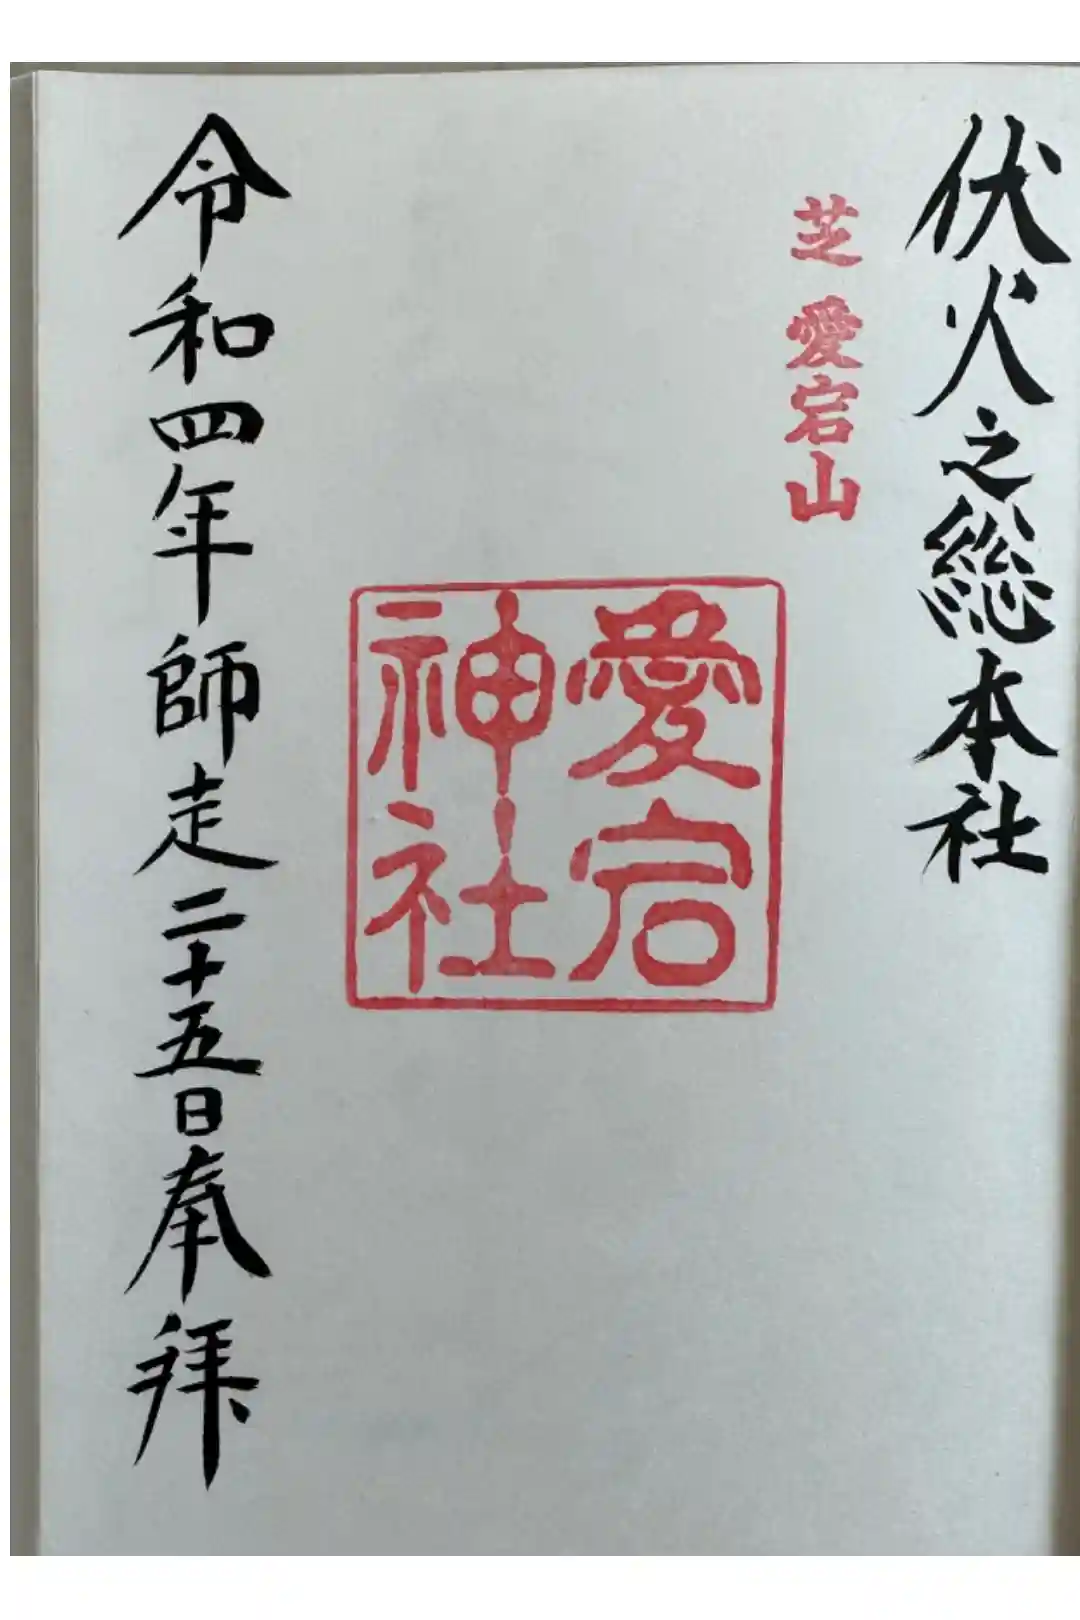 伏火之総本社
芝 愛宕山
愛宕
神社
令和四年師走二十五日奉拝